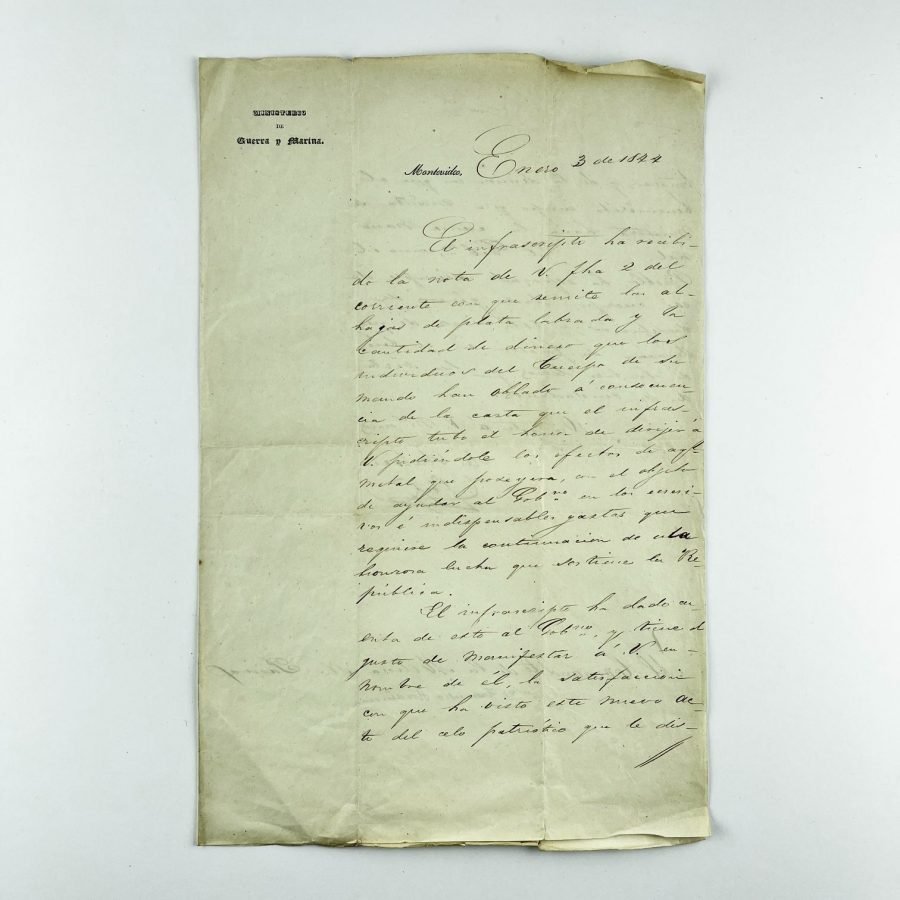 MINISTERIO
DE
Guerra y Marina.
Montevideo, Enero 3 de 1844
El infrascripto ha recibi-
do la nota de V. fha 2 del
corriente con que remite las al-
hajas de plata labrada y la
cantidad de dinero que los
individuos del Cuerpo de su
mando han oblado á consecuen
cia de la carta que el infras-
cripto tubo el honor de dirijir á
V. pidiéndole los efectos de aql
metal que poseyera, con el objeto
de ayudar al Gobno en los
é indispensables gastos que
requiere la continuacion de esta
honrosa lucha que sostiene la Re-
pública.
El infrascripto ha dado cu
enta de esto al Gobno, y tiene el
gusto de manifestar á V. en-
nombre de él, la satisfaccion
con que ha visto este nuevo ac-
to del celo patriótico que le dis-